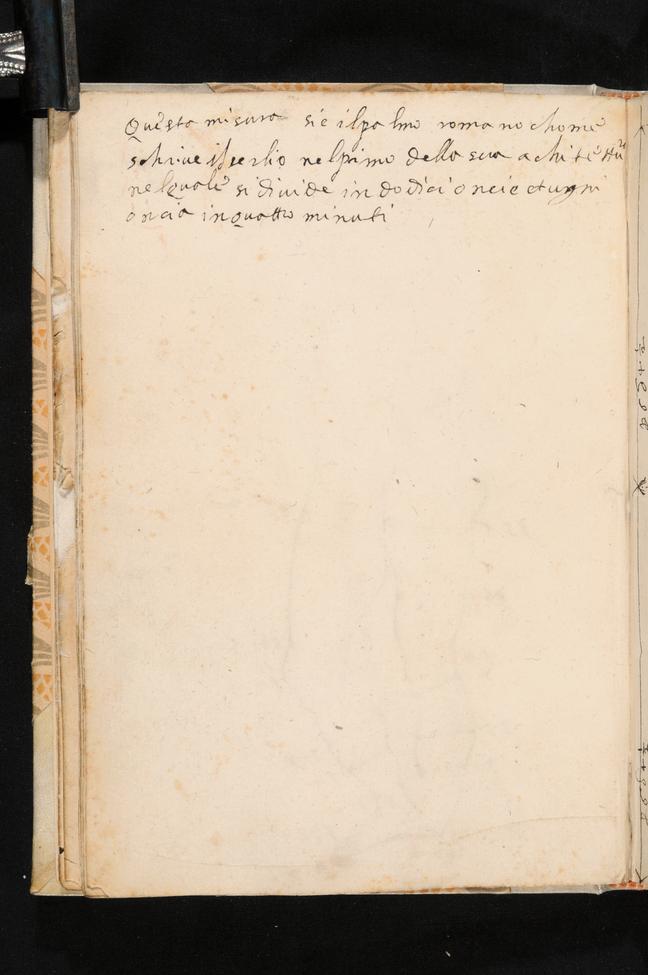 Questa misura sie ilpalmo romano chome
schriue ilserlio nelprimo della sua achitettu
nelquale si diuide in dodici oncie et ugni
oncia inquatto minuti